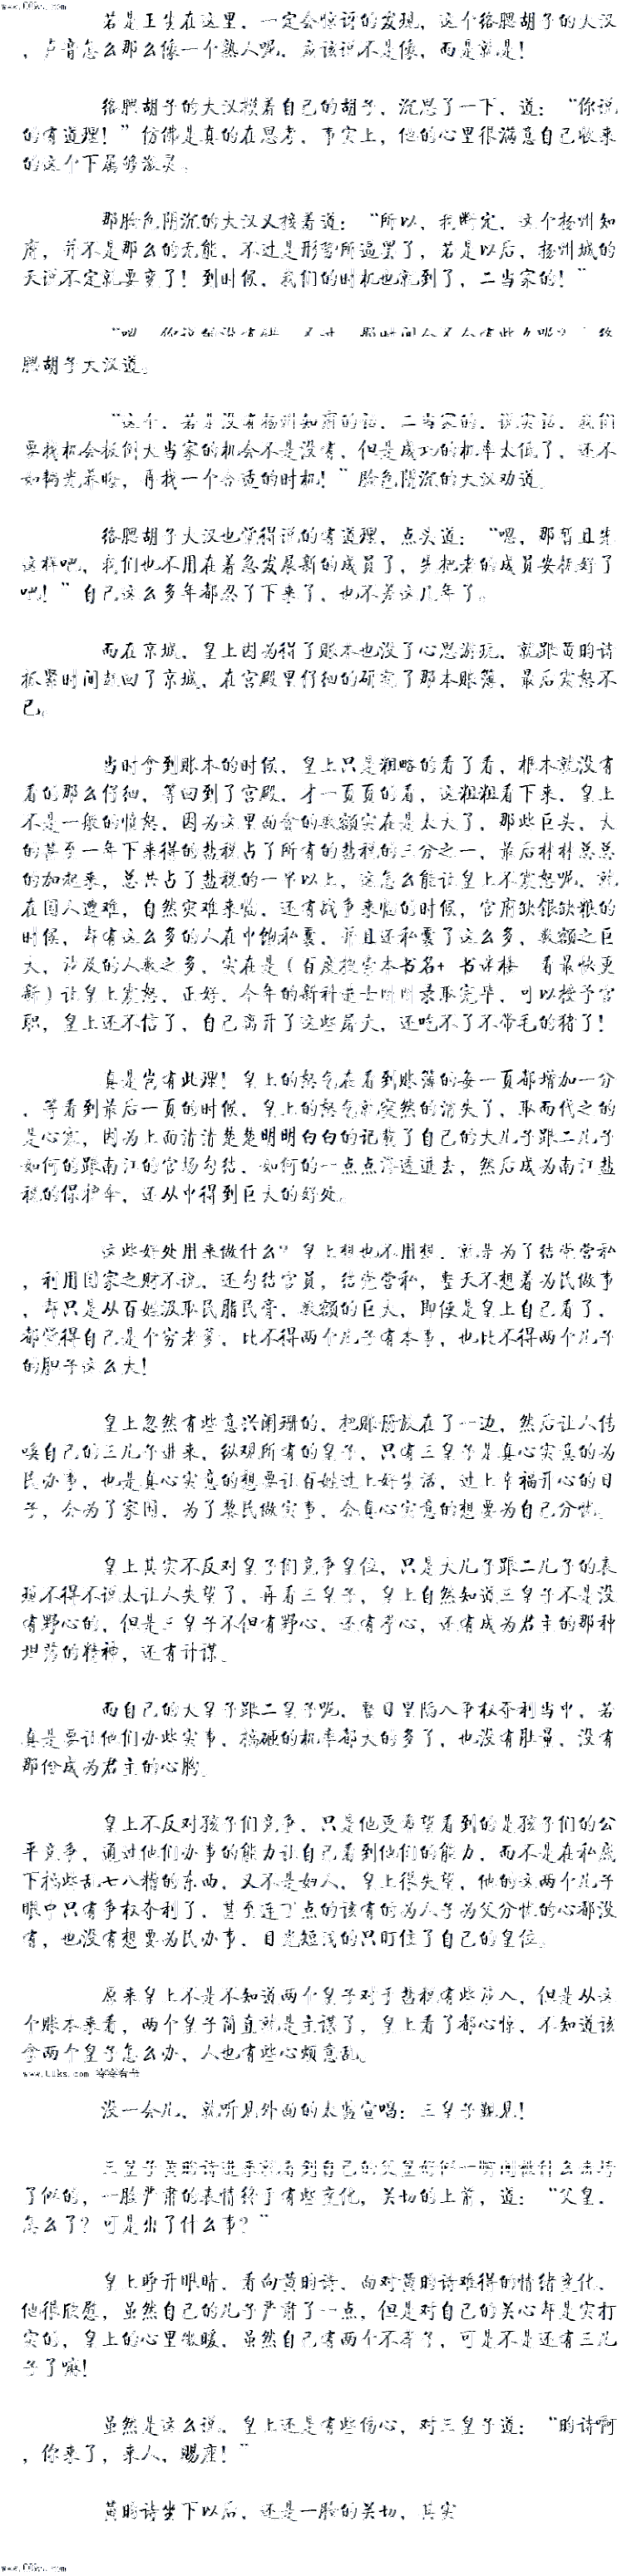 若是王生在这里，一定会惊讶的发现，这个络腮胡子的大汉
，声音怎么那么像一个熟人呢，应该说不是像，而是就是！
络腮胡子的大汉摸着自己的胡子，沉思了一下，道：“你说
的有道理！”仿佛是真的在思考，事实上，他的心里很满意自己收来
的这个下属够激灵。
那脸色阴沉的大汉又接着道：“所以，我断定，这个扬州知
府，并不是那么的无能，不过是形势所逼罢了，若是以后，扬州城的
天说不定就要变了！到时候，我们的时机也就到了，二当家的！”
“嗯，你说的没有错，不过，那时间会不会有些久呢？”络
腮胡子大汉道。
“这个，若是没有扬州知府的话，二当家的，说实话，我们
要找机会扳倒大当家的机会不是没有，但是成功的机率太低了，还不
如韬光养晦，再找一个合适的时机！”脸色阴沉的大汉劝道。
络腮胡子大汉也觉得说的有道理，点头道：“嗯，那暂且先
这样吧，我们也不用在着急发展新的成员了，先把老的成员安抚好了
吧！”自己这么多年都忍了下来了，也不差这几年了。
而在京城，皇上因为得了账本也没了心思游玩，就跟黄昀诗
抓紧时间赶回了京城，在宫殿里仔细的研究了那本账簿，最后发怒不
已。
当时拿到账本的时候，皇上只是粗略的看了看，根本就没有
看的那么仔细，等回到了宫殿，才一页页的看，这粗粗看下来，皇上
不是一般的愤怒，因为这里面含的数额实在是太大了，那些巨头，大
的甚至一年下来得的盐税占了所有的盐税的三分之一，最后林林总总
的加起来，总共占了盐税的一半以上，这怎么能让皇上不发怒呢，就
在国人遭难，自然灾难来临，还有战争来临的时候，官府缺银缺粮的
时候，却有这么多的人在中饱私囊，并且还私囊了这么多，数额之巨
大，涉及的人数之多，实在是（百度搜索本书名+ 书详楼 看最快更
新）让皇上发怒，正好，今年的新科进士刚刚录取完毕，可以授予官
职，皇上还不信了，自己离开了这些屠夫，还吃不了不带毛的猪了！
真是岂有此理！皇上的怒气在看到账簿的每一页都增加一分
，等看到最后一页的时候，皇上的怒气却突然的消失了，取而代之的
是心寒，因为上面清清楚楚明明白白的记载了自己的大儿子跟二儿子
如何的跟南江的官场勾结，如何的一点点渗透进去，然后成为南江盐
税的保护伞，还从中得到巨大的好处。
这些好处用来做什么？皇上想也不用想，就是为了结党营私
，利用国家之财不说，还勾结官员，结党营私，整天不想着为民做事
，却只是从百姓汲取民脂民膏，数额的巨大，即便是皇上自己看了，
都觉得自己是个穷老爹，比不得两个儿子有本事，也比不得两个儿子
的胆子这么大！
皇上忽然有些意兴阑珊的，把账册放在了一边，然后让人传
唤自己的三儿子进来，纵观所有的皇子，只有三皇子是真心实意的为
民办事，也是真心实意的想要让百姓过上好生活，过上幸福开心的日
子，会为了家国，为了黎民做实事，会真心实意的想要为自己分忧。
皇上其实不反对皇子们竞争皇位，只是大儿子跟二儿子的表
现不得不说太让人失望了，再看三皇子，皇上自然知道三皇子不是没
有野心的，但是三皇子不但有野心，还有孝心，还有成为君主的那种
坦荡的精神，还有计谋。
而自己的大皇子跟二皇子呢，整日里陷入争权夺利当中，若
真是要让他们办些实事，搞砸的机率都大的多了，也没有肚量，没有
那份成为君主的心胸。
皇上不反对孩子们竞争，只是他更希望看到的是孩子们的公
平竞争，通过他们办事的能力让自己看到他们的能力，而不是在私底
下搞些乱七八糟的东西，又不是妇人，皇上很失望，他的这两个儿子
眼中只有争权夺利了，甚至连丁点的该有的为人子为父分忧的心都没
有，也没有想要为民办事，目光短浅的只盯住了自己的皇位。
原来皇上不是不知道两个皇子对于盐税有些插入，但是从这
个账本来看，两个皇子简直就是主谋了，皇上看了都心惊，不知道该
拿两个皇子怎么办，人也有些心烦意乱。
没一会儿，就听见外面的太监宣唱：三皇子觐见！
三皇子黄昀诗进来就看到自己的父皇好像一瞬间被什么击垮
了似的，一脸严肃的表情终于有些变化，关切的上前，道：“父皇，
怎么了？可是出了什么事？”
皇上睁开眼睛，看向黄昀诗，面对黄昀诗难得的情绪变化，
他很欣慰，虽然自己的儿子严肃了一点，但是对自己的关心却是实打
实的，皇上的心里微暖，虽然自己有两个不孝子，可是不是还有三儿
子了嘛！
虽然是这么说，皇上还是有些伤心，对三皇子道：“昀诗啊
，你来了，来人，赐座！”
黄昀诗坐下以后，还是一脸的关切，其实